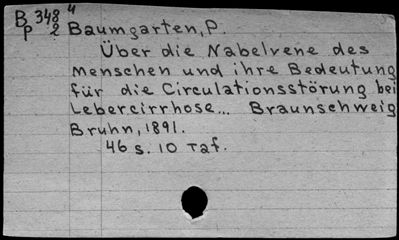 B 348 4
P 2 Baumgarten, P.
Über die Nabelvene des
Menschen und ihre Bedeutung
für die Circulationsstörung bei
Lebercirrhose... Braunschweig
Bruhn, 1891.
46 s. 10 Taf.